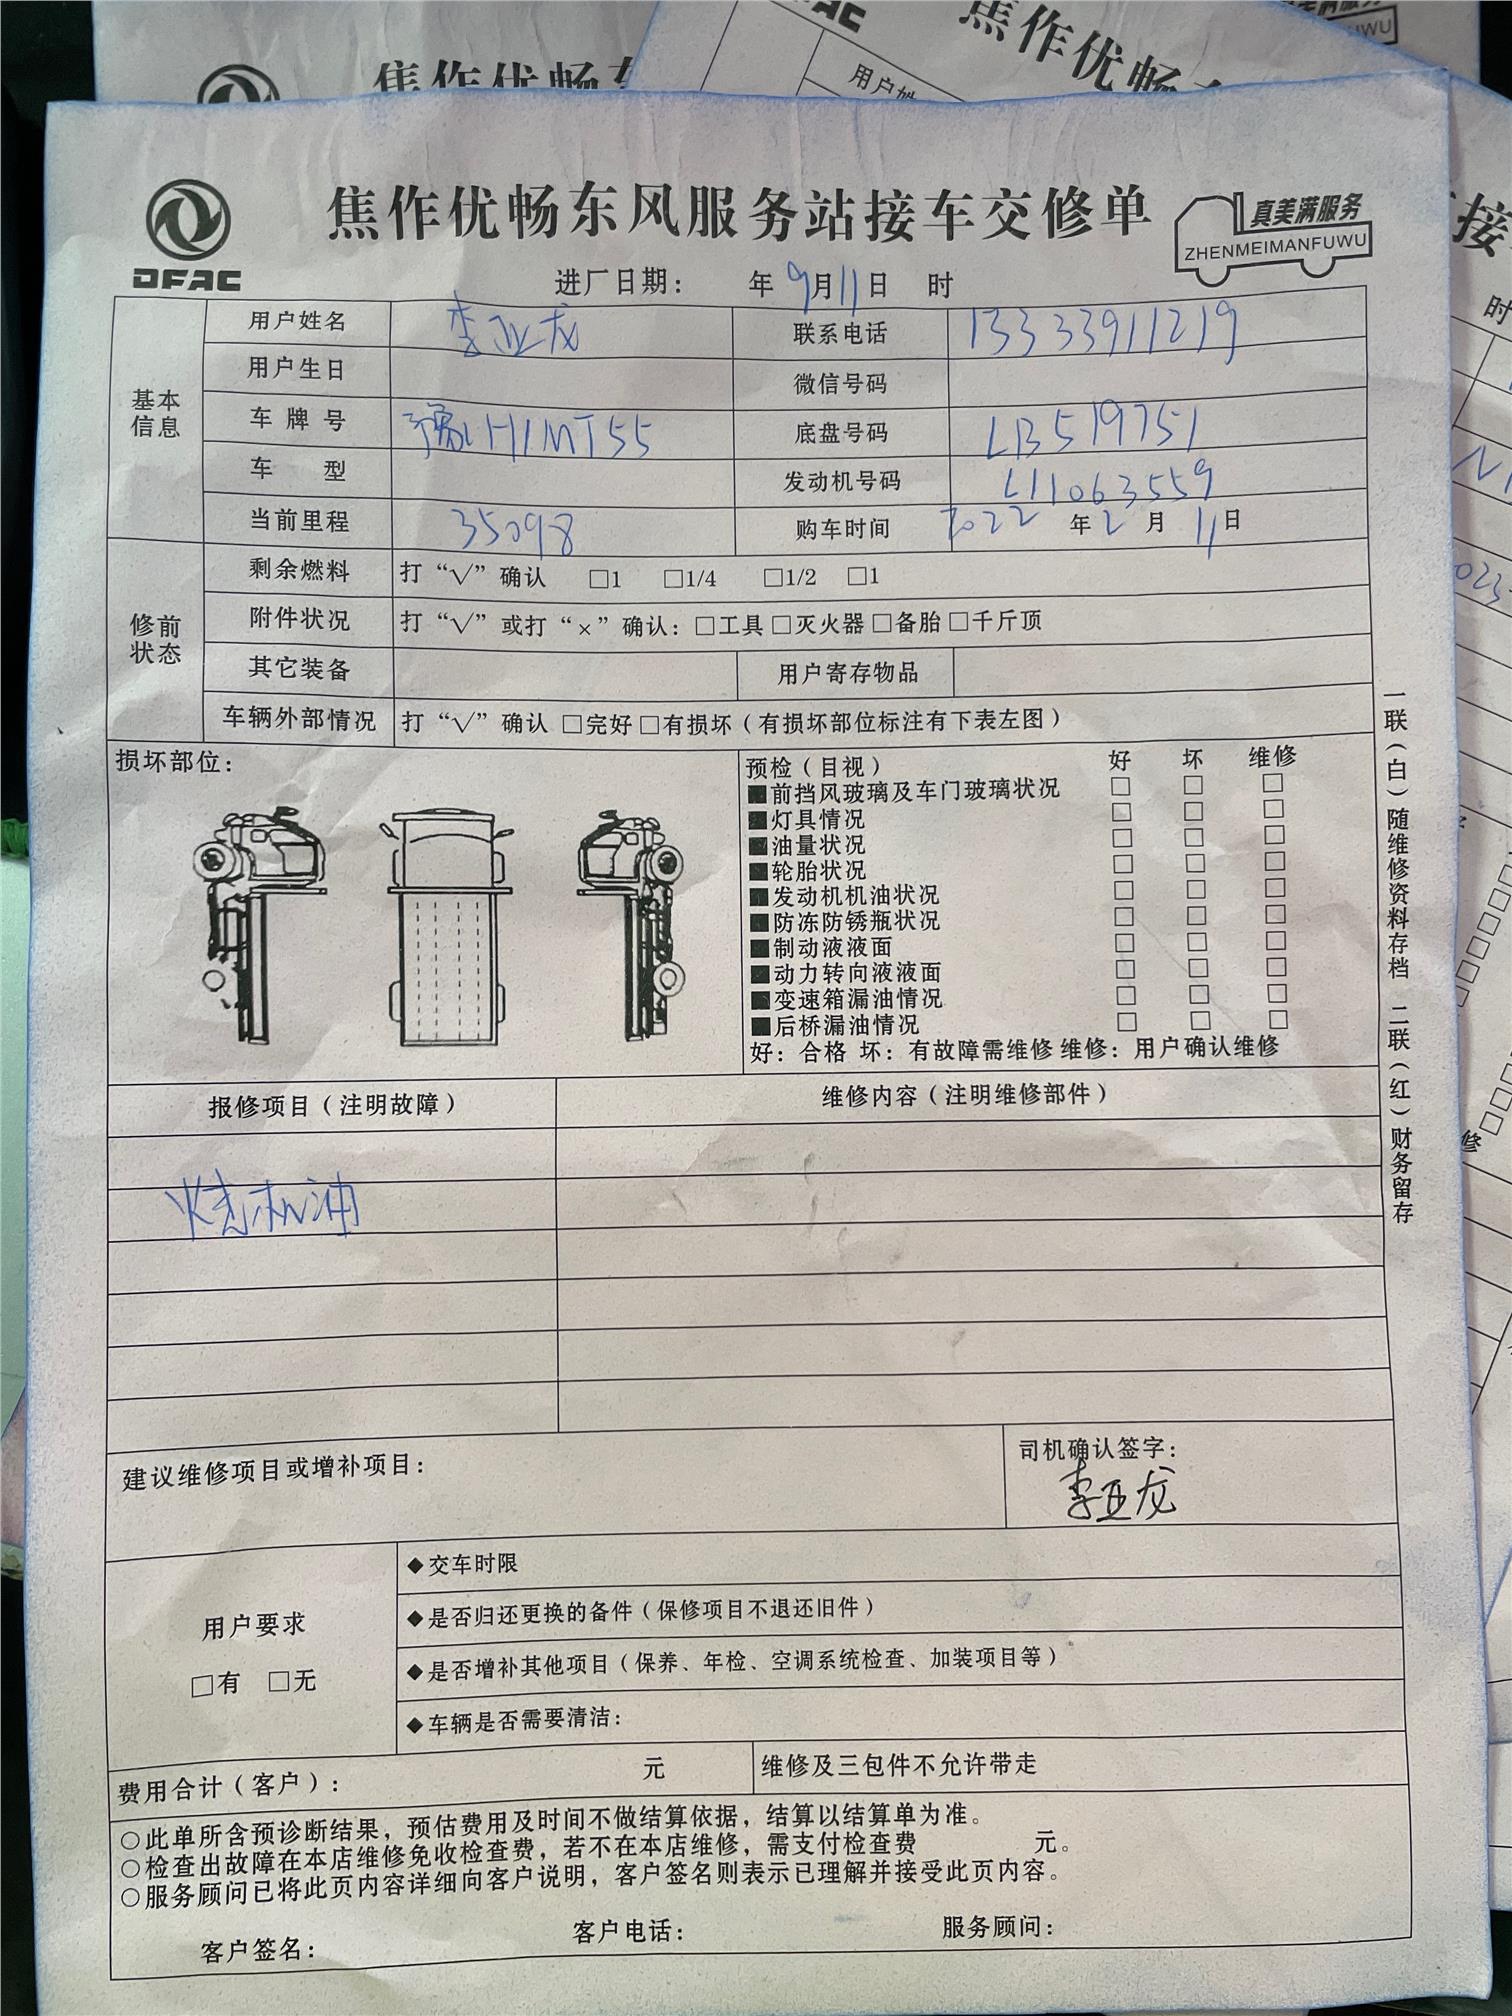 焦作优畅东风服务站接车交修单
DFAC
真美满服务
ZHENMEIMANFUWU
进厂日期： 年 9月11日 时
基本信息
用户姓名 李亚龙 联系电话 13333911219
用户生日 微信号码
车牌号 豫H1MT55 底盘号码 LB519751
车 型 发动机号码 L11063559
当前里程 35098 购车时间 2022年2月11日
修前状态
剩余燃料 打“√”确认 □1 □1/4 □1/2 □1
附件状况 打“√”或打“×”确认：□工具□灭火器□备胎□千斤顶
其它装备 用户寄存物品
车辆外部情况 打“√”确认 □完好□有损坏（有损坏部位标注有下表左图）
损坏部位：
预检（目视） 好 坏 维修
■前挡风玻璃及车门玻璃状况 □ □ □
■灯具情况 □ □ □
■油量状况 □ □ □
■轮胎状况 □ □ □
■发动机机油状况 □ □ □
■防冻防锈瓶状况 □ □ □
■制动液液面 □ □ □
■动力转向液液面 □ □ □
■变速箱漏油情况 □ □ □
■后桥漏油情况 □ □ □
好：合格 坏：有故障需维修 维修：用户确认维修
报修项目（注明故障） 维修内容（注明维修部件）
烧机油
建议维修项目或增补项目：
司机确认签字：
李亚龙
用户要求
□有 □无
◆交车时限
◆是否归还更换的备件（保修项目不退还旧件）
◆是否增补其他项目（保养、年检、空调系统检查、加装项目等）
◆车辆是否需要清洁：
费用合计（客户）： 元 维修及三包件不允许带走
○此单所含预诊断结果，预估费用及时间不做结算依据，结算以结算单为准。
○检查出故障在本店维修免收检查费，若不在本店维修，需支付检查费 元。
○服务顾问已将此页内容详细向客户说明，客户签名则表示已理解并接受此页内容。
客户签名： 客户电话： 服务顾问：
一联（白）随维修资料存档 二联（红）财务留存
焦作优畅
焦作优畅
用户姓